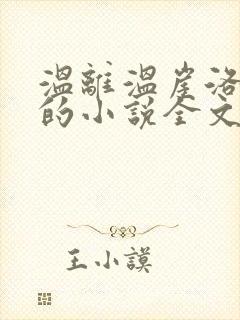 温離温崖洛
的小説全文
王小謨